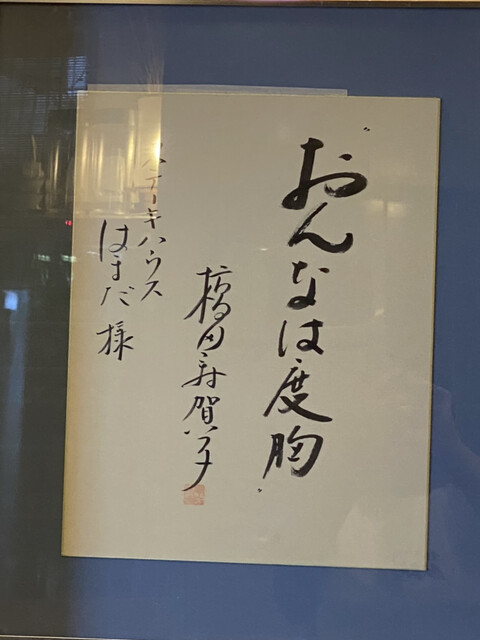 "おんなは度胸"
橋田壽賀子
ステーキハウス
はまだ様